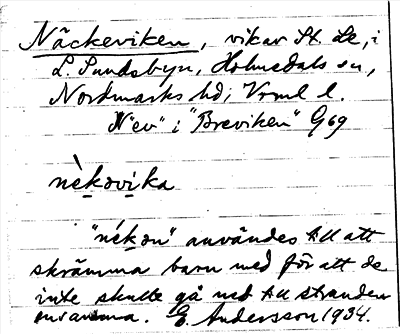 Näckeviken, vik av St. Le, i
L. Sundsbyn, Holmedals sn,
Nordmarks hd, Vrml l.
N"ev" i "Breviken" G69
nèkovika
"nékon" användes till att
skrämma barn med för att de
inte skulle gå ned till stranden
ensamma. G. Andersson 1934.